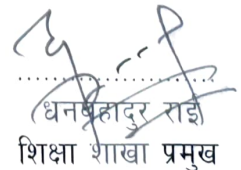 (धनबहादुर राई)
शिक्षा शाखा प्रमुख